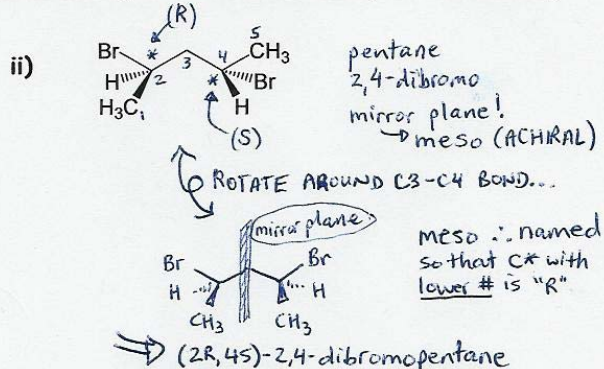 (R)
ii)
Br * 3 4 5 CH3
H 2 * Br
H3C1 H
(S)
pentane
2,4-dibromo
mirror plane!
→ meso (ACHIRAL)
ROTATE AROUND C3-C4 BOND...
mirror plane
Br Br
H H
CH3 CH3
meso ∴ named
so that C* with
lower # is "R"
⇒ (2R,4S)-2,4-dibromopentane